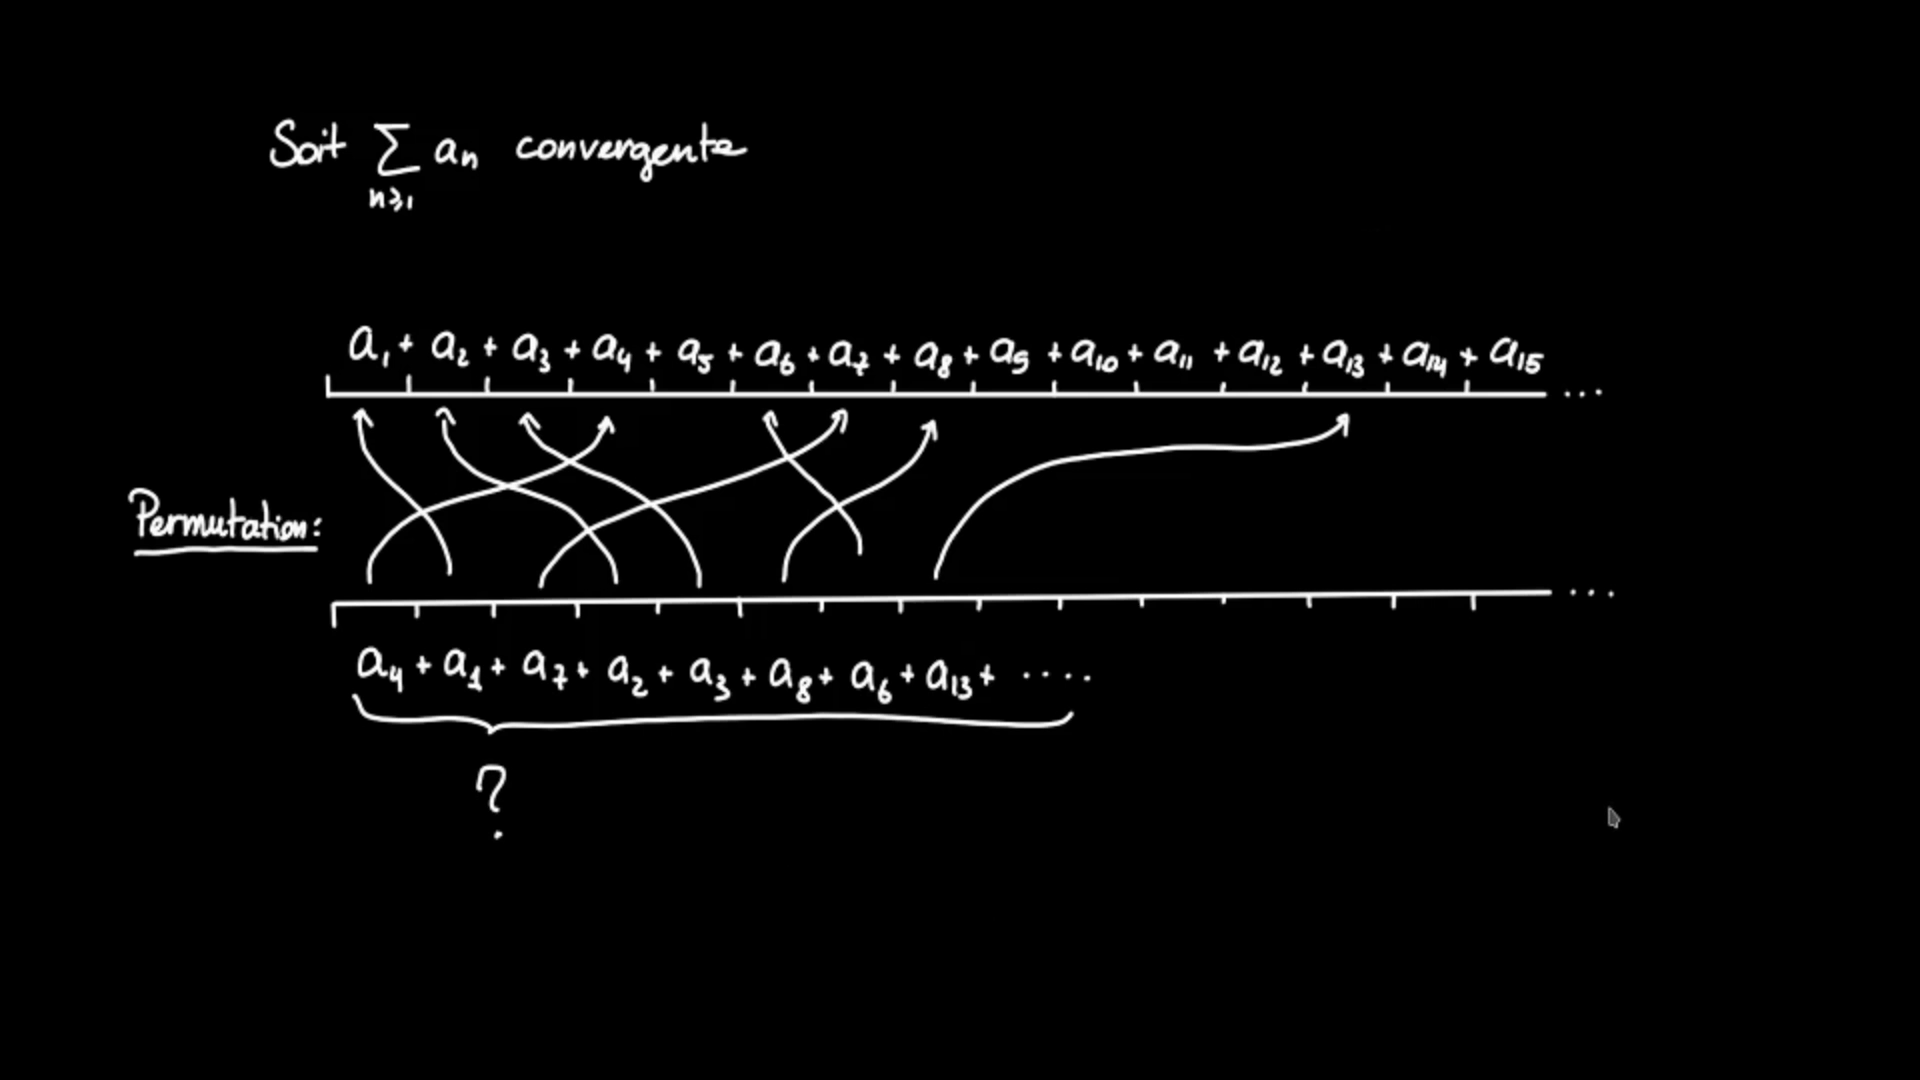 Soit ∑ aₙ convergente
n⩾1
a₁ + a₂ + a₃ + a₄ + a₅ + a₆ + a₇ + a₈ + a₉ + a₁₀ + a₁₁ + a₁₂ + a₁₃ + a₁₄ + a₁₅ ...
Permutation:
...
a₄ + a₁ + a₇ + a₂ + a₃ + a₈ + a₆ + a₁₃ + ....
?